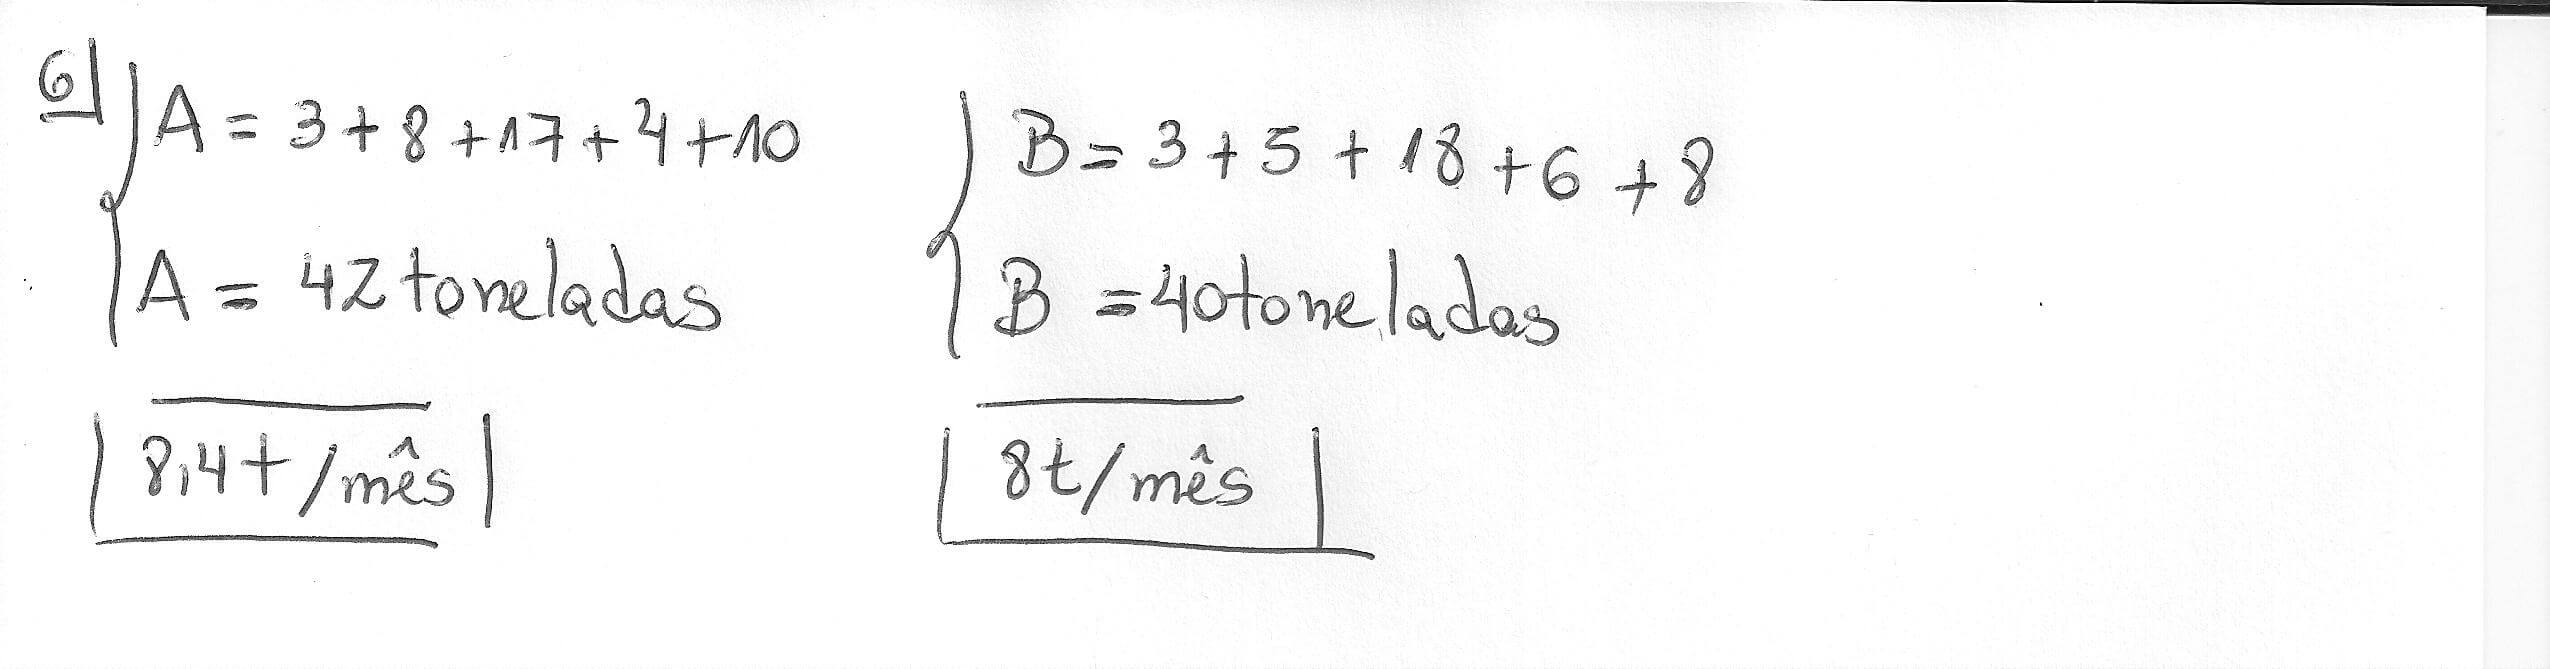 6) A = 3+8+17+4+10
A = 42 toneladas
8,4t/mês
B = 3+5+18+6+8
B = 40 toneladas
8t/mês